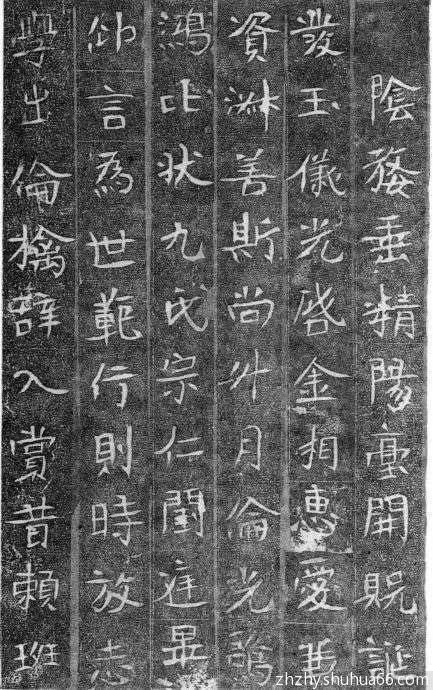 陰婺垂精陽臺開貺誕
發玉儀光啓金相惠愛
資淑善斯尚升月倫光
鴻比狀九氏宗仁閨庭畢
仰言為世範行則時放志
學出倫摛辭入賞昔賴班
zhzhy.shuhua66.com